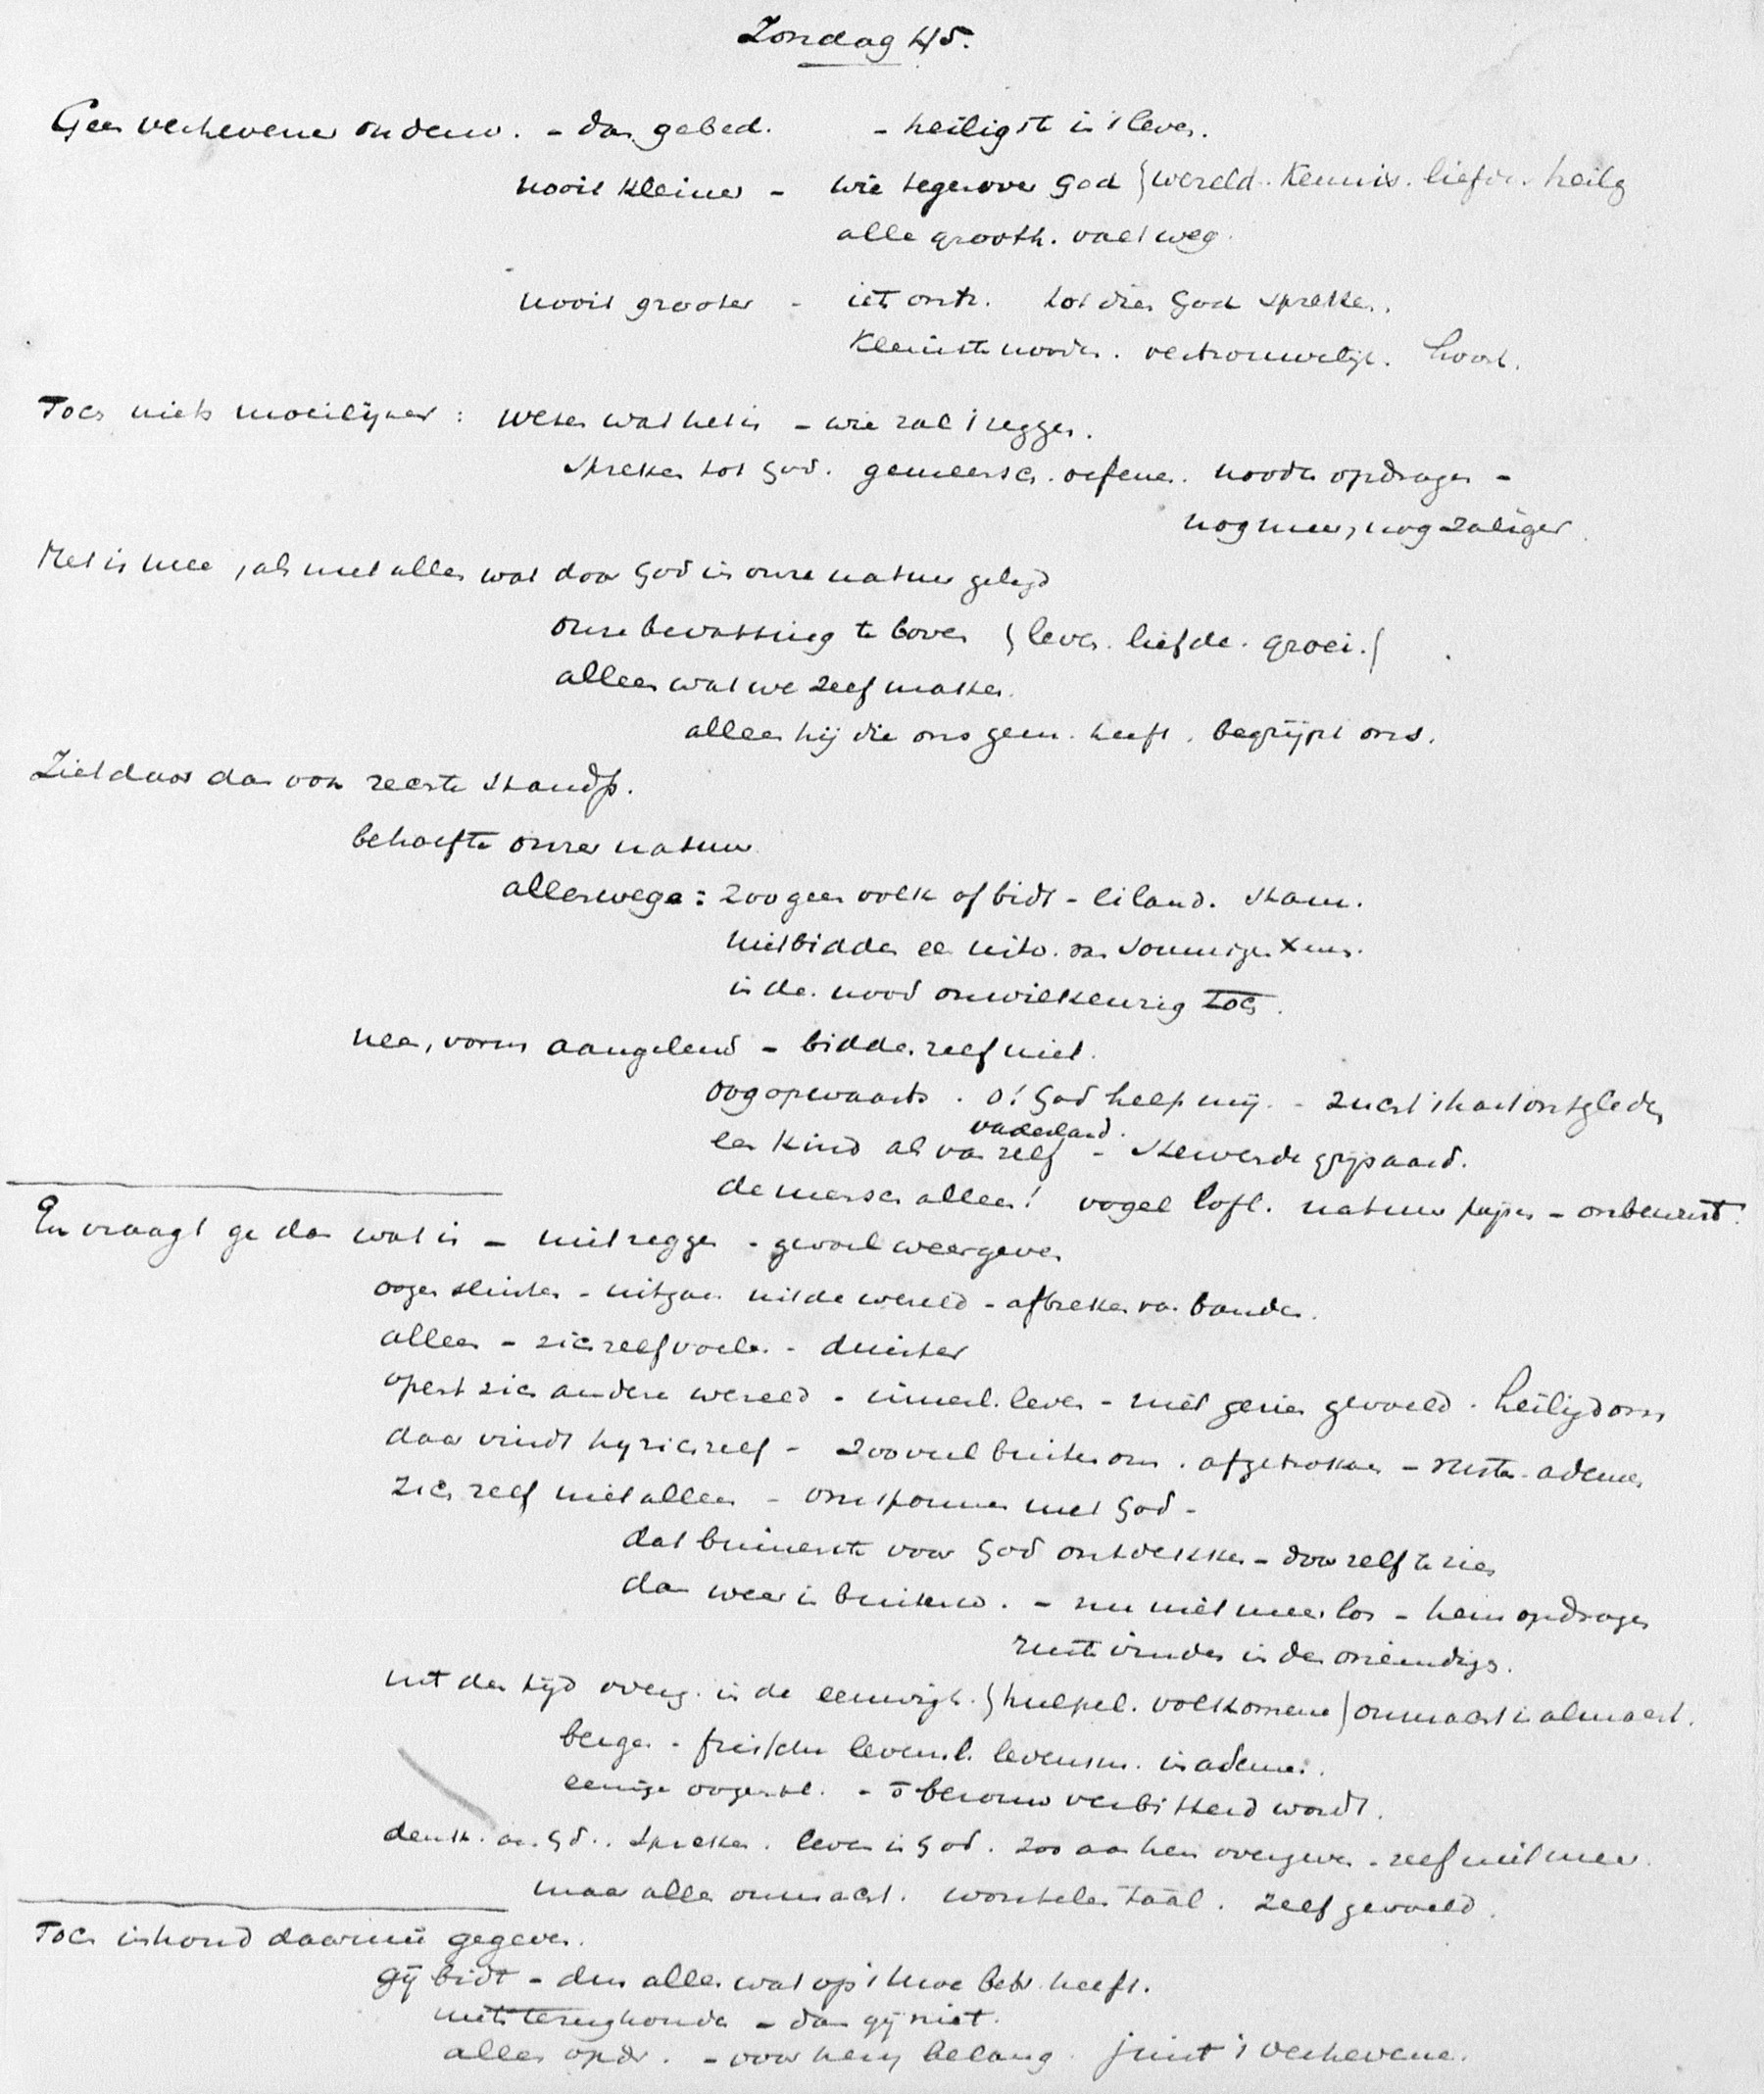 Zondag 45.
Geen verhevener onderw. - dan gebed. - heiligste in 't leven.
nooit kleiner - wie tegenover God (wereld. Kennis. liefde. heilig
alle grooth. valt weg.
nooit grooter - iets ontz. tot dien God spreken.
Kleinste nooden. vertrouwelijk. hoort.
Toch niets moeilijker: weten wat het is - wie zal 't zeggen.
spreken tot God. gemeensch. oefenen. nooden opdragen -
nog meer, nog zaliger.
Het is mee, als met alles wat door God in onze natuur gelegd
onze bevatting te boven (leven. liefde. groei.)
alleen wat we zelf maken.
alleen hij die ons gem. heeft. begrijpt ons.
Ziet daar dan ook 't eerste standp.
behoefte onzer natuur
allerwege: zoo geen volk of bidt - eiland. stam.
niet bidden een uitv. van sommige Xnen.
in de nood onwillekeurig toch.
neen, vorm aangeleerd - bidden zelf niet.
oog opwaarts. o! God help mij - zucht 't hart ontgleden
vaderland.
een kind als van zelf - stervende grijsaard.
de mensch alleen! vogel lofl. natuur - onbewust.
En vraagt ge dan wat is - niet zeggen - gevoel weergeven
oogen sluiten - uitgaan uit de wereld - afbreken van banden.
alleen - zich zelf voelen - duister
opent zich andere wereld - innerl. leven - niet gevoeld. heiligdom
daar vindt hij zich zelf - zooveel buiten om. afgetrokken - rusten - ademen
zich zelf niet alleen - met God -
dat binnenste voor God ontdekken - door zelf te zien
dan weer in buitenw. - nu niet meer los - hem opdragen
rust vinden in den oneindige.
uit den tijd overg. in de eeuwigh. (hulpel. volkomene) onmacht in almacht.
bergen - frissche levensl. inademen.
eenige oogenbl. - verbitterd wordt.
denk. aan Gd.. spreken. leven in God. zoo aan hem overgeven - zelf niet meer.
maar alle onmacht. worstelen taal. zelf gevoeld.
Toch inhoud daarmeê gegeven.
gij bidt - dus alles wat op 't betr. heeft.
niets terughouden - dan gij niet.
alles opdr. - voor hem belang. juist 't verhevene.